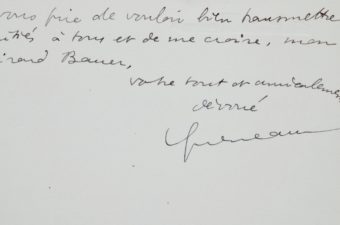 vous prie de vouloir bien transmettre
itiés à tous et de me croire, mon
irard Bauer,
votre tout et amicalement
dévoué
Queneau